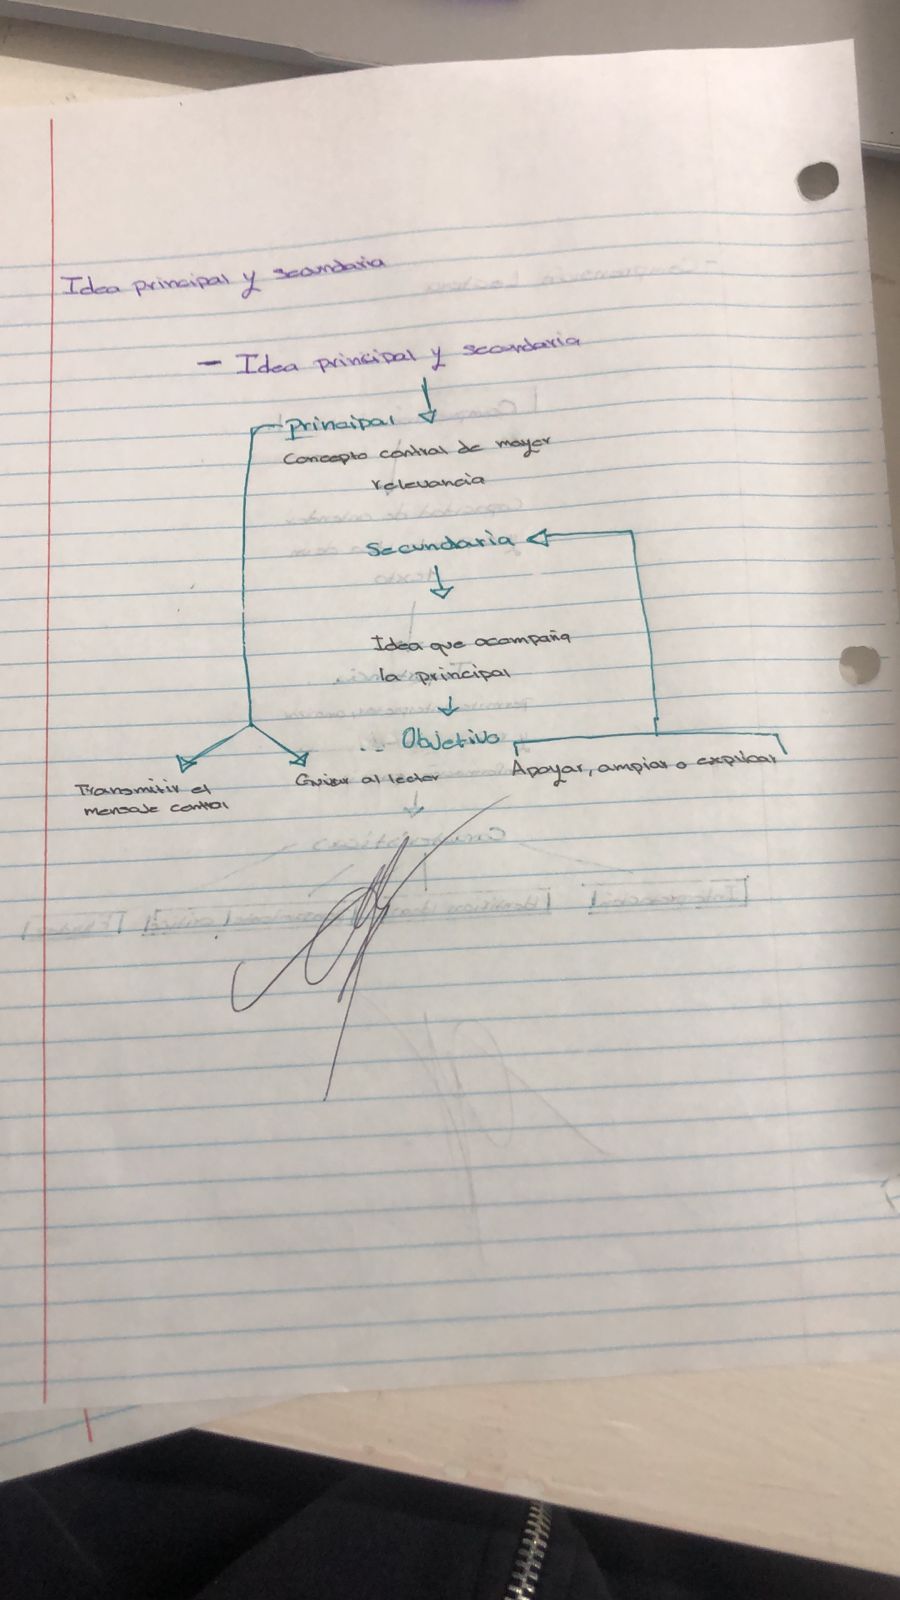 Idea principal y secundaria
- Idea principal y secundaria
Principal
Concepto central de mayor
relevancia
Secundaria
Idea que acompaña
la principal
Objetivo
Transmitir el
mensaje central
Guiar al lector
Apoyar, ampiar o explicar